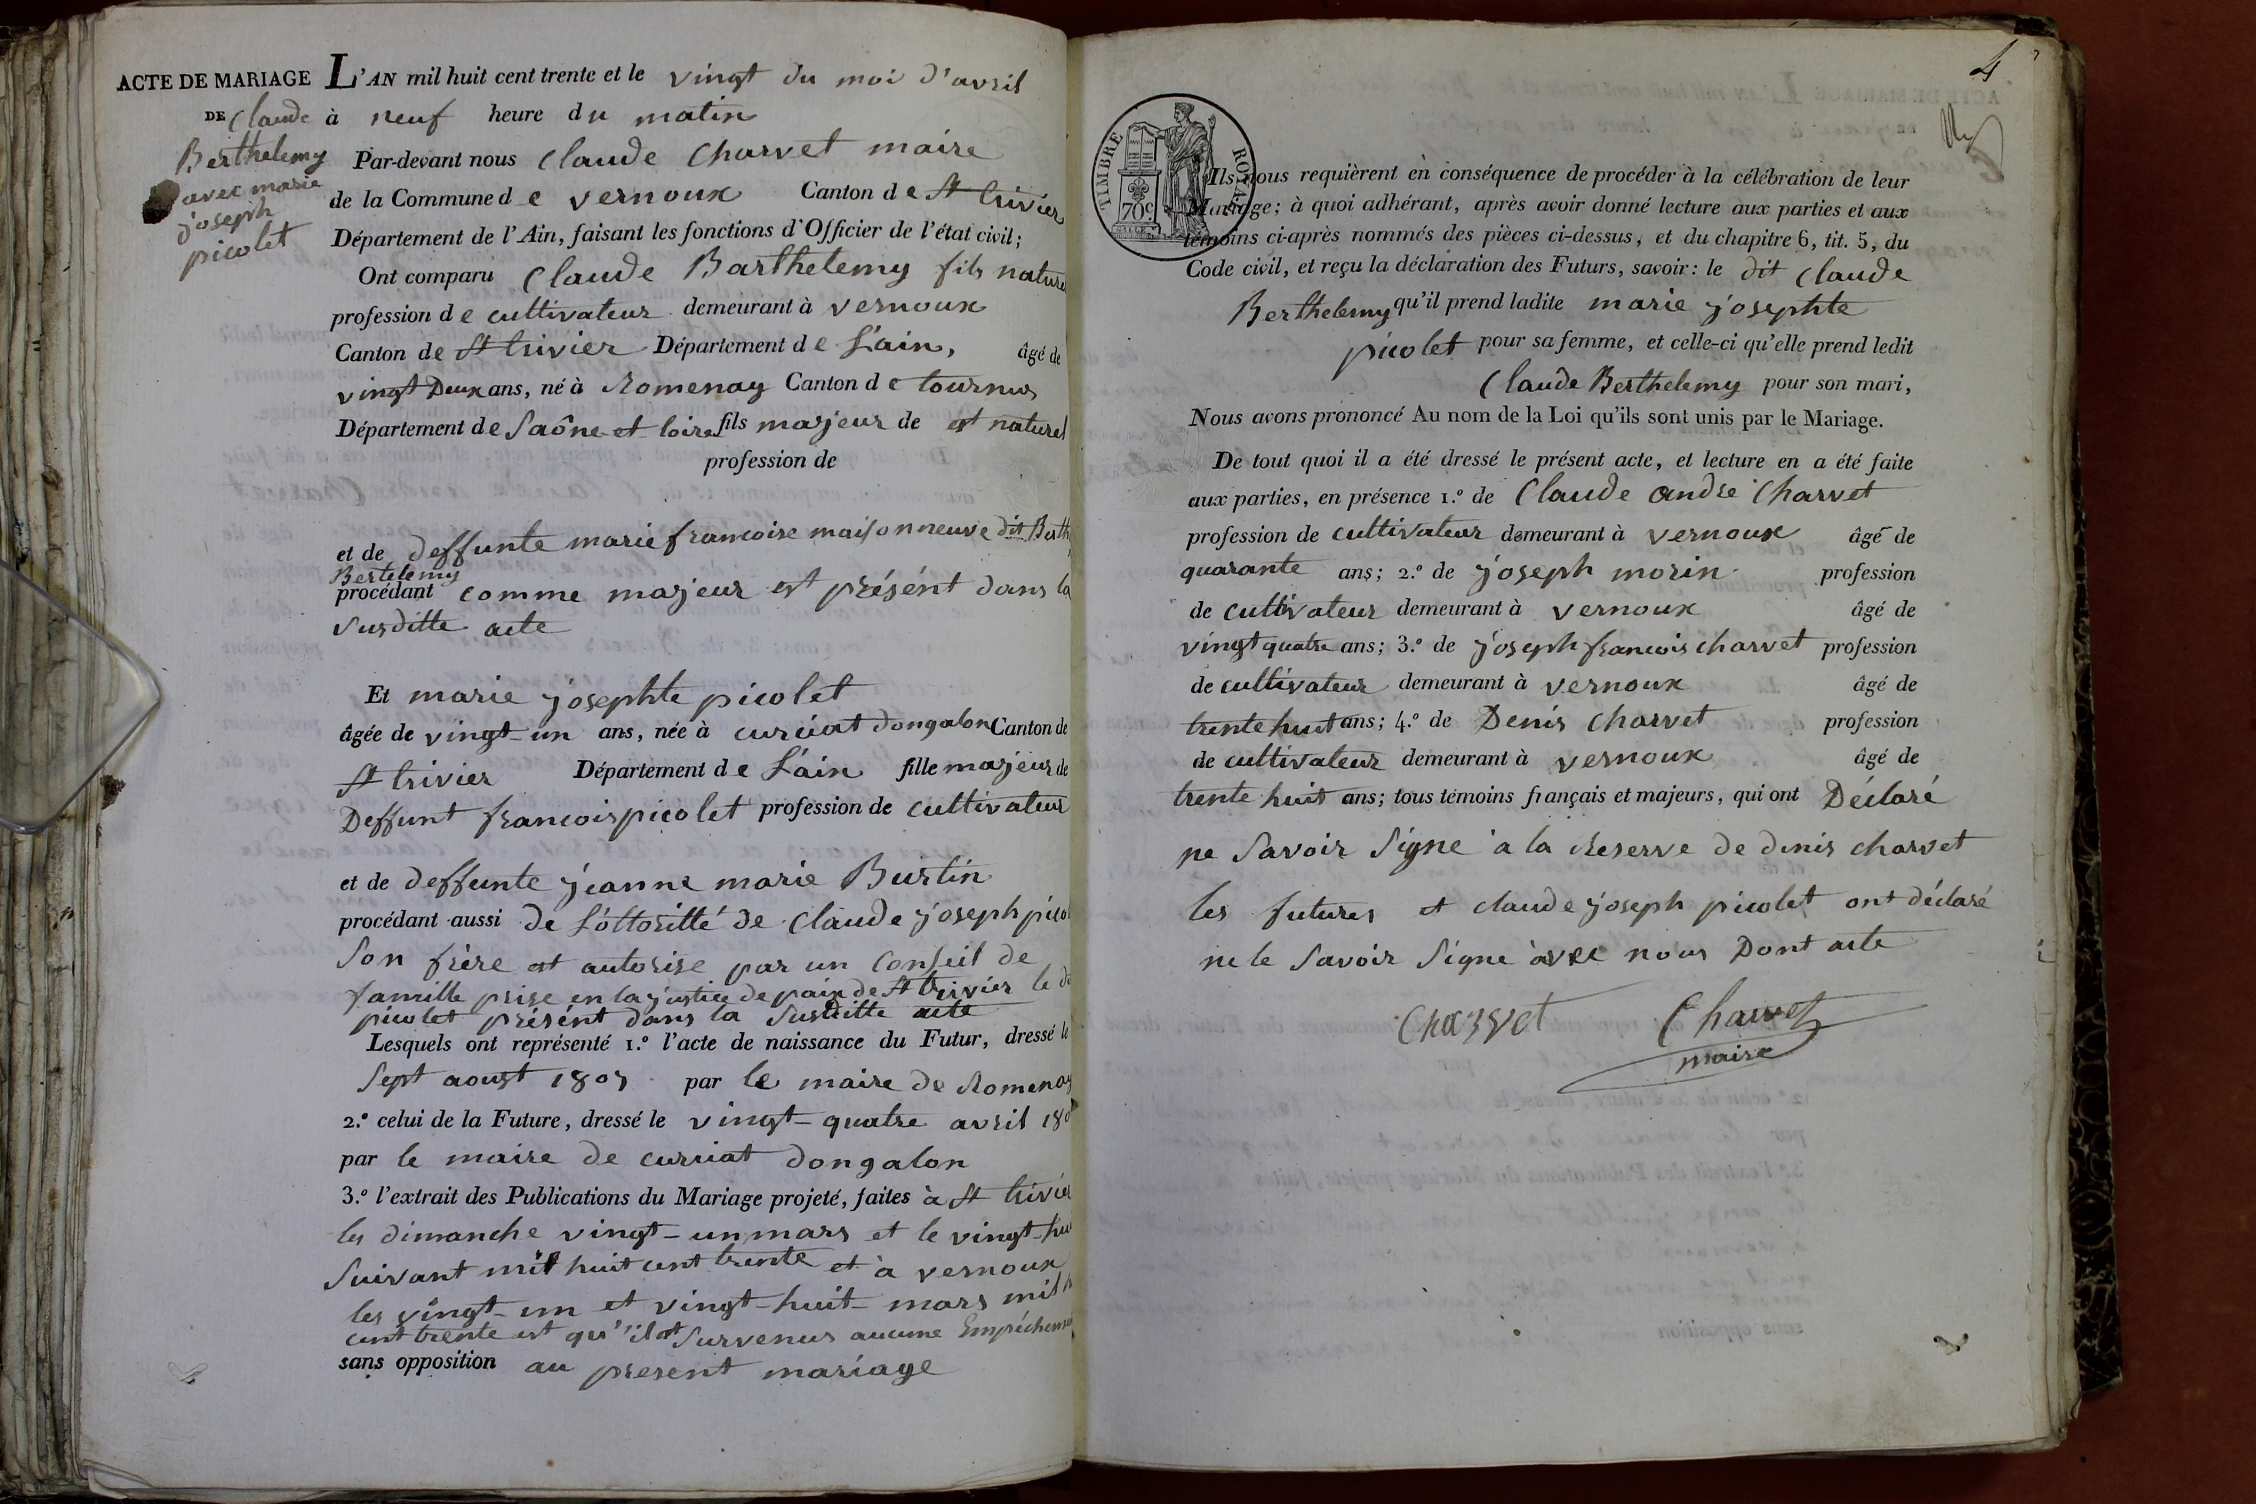 ACTE DE MARIAGE
DE Claude
Berthelemy
avec marie
joseph
picolet
L'AN mil huit cent trente et le vingt du moi d'avril
à neuf heure du matin
Par-devant nous Claude Charvet maire
de la Commune de vernoux Canton de St trivier
Département de l'Ain, faisant les fonctions d'Officier de l'état civil;
Ont comparu Claude Barthelemy fils nature
profession de cultivateur demeurant à vernoux
Canton de St trivier Département de L'ain, âgé de
vingt Deux ans, né à Romenay Canton de tournus
Département de Saône et loire fils majeur de et naturel
profession de
et de deffunte marie francoise maisonneuve dit Berth
Bertelemy
procédant comme majeur et présént dans la
susditte acte
Et marie josephte picolet
âgée de vingt-un ans, née à curciat dongalon Canton de
St trivier Département de L'ain fille majeur de
Deffunt francois picolet profession de cultivateur
et de deffunte jeanne marie Burtin
procédant aussi de L'ottoritté de Claude joseph picol
Son frère et autorise par un Conseil de
famille prise en la justice de paix de St trivier le d
picolet présént dans la Susditte acte
Lesquels ont représenté 1.º l'acte de naissance du Futur, dressé le
Sept aoust 1807 par le maire de Romenay
2.º celui de la Future, dressé le vingt-quatre avril 180
par le maire de curciat dongalon
3.º l'extrait des Publications du Mariage projeté, faites à St trivier
les dimanche vingt-un mars et le vingt-hui
Suivant mil huit cent trente et à vernoux
les vingt-un et vingt-huit-mars mil h
cent trente et qu'il et survenus aucune Empéchem
sans opposition au present mariage
4
TIMBRE ROYAL
70 c.
Ils nous requièrent en conséquence de procéder à la célébration de leur
Mariage; à quoi adhérant, après avoir donné lecture aux parties et aux
témoins ci-après nommés des pièces ci-dessus, et du chapitre 6, tit. 5, du
Code civil, et reçu la déclaration des Futurs, savoir: le dit Claude
Berthelemy qu'il prend ladite marie josephte
picolet pour sa femme, et celle-ci qu'elle prend ledit
Claude Berthelemy pour son mari,
Nous avons prononcé Au nom de la Loi qu'ils sont unis par le Mariage.
De tout quoi il a été dressé le présent acte, et lecture en a été faite
aux parties, en présence 1.º de Claude andre Charvet
profession de cultivateur demeurant à vernoux âgé de
quarante ans; 2.º de joseph morin profession
de cultivateur demeurant à vernoux âgé de
vingt quatre ans; 3.º de joseph francois charvet profession
de cultivateur demeurant à vernoux âgé de
trente huit ans; 4.º de Denis Charvet profession
de cultivateur demeurant à vernoux âgé de
trente huit ans; tous témoins français et majeurs, qui ont Déclaré
ne Savoir Signe à la Reserve de denis charvet
les futures et claude joseph picolet ont déclaré
ne le Savoir Signe avec nous Dont acte
Charvet Charvet
maire